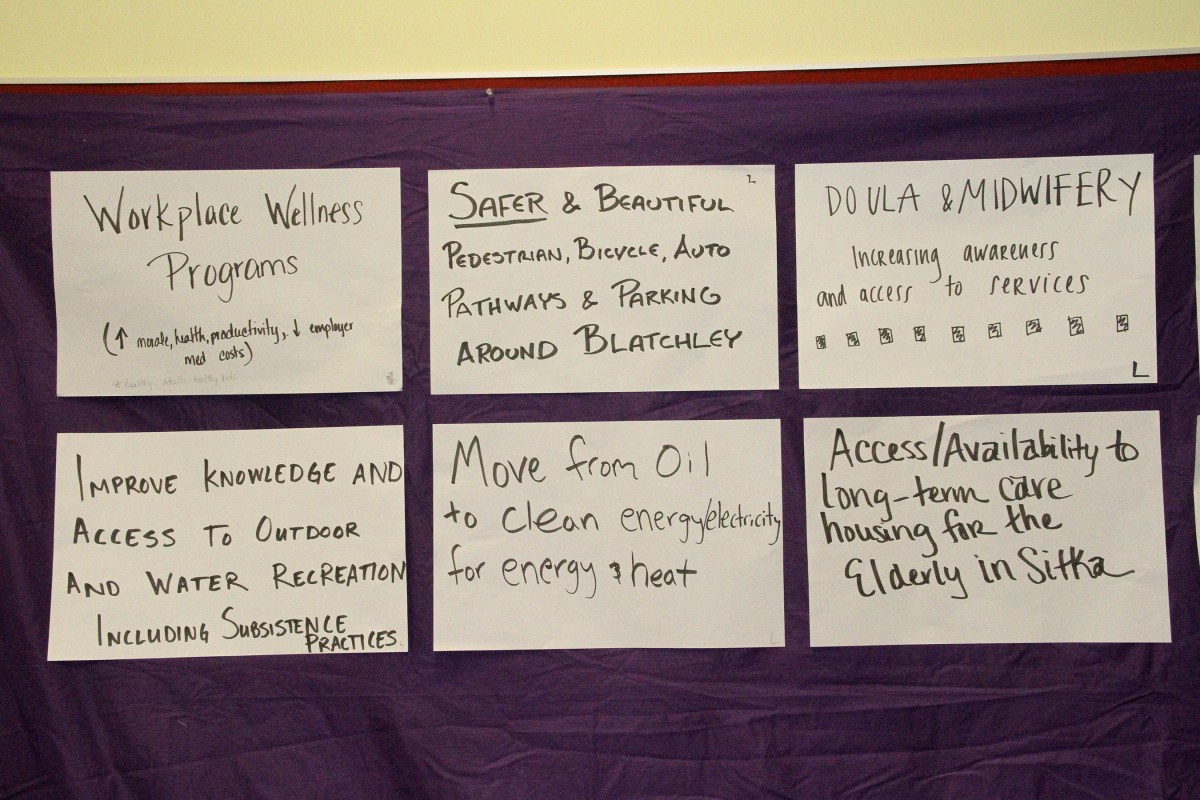 Workplace Wellness
Programs
(↑ morale, health, productivity, ↓ employer
med costs)
SAFER & BEAUTIFUL
PEDESTRIAN, BICYCLE, AUTO
PATHWAYS & PARKING
AROUND BLATCHLEY
L
DOULA & MIDWIFERY
Increasing awareness
and access to services
L
IMPROVE KNOWLEDGE AND
ACCESS TO OUTDOOR
AND WATER RECREATION
INCLUDING SUBSISTENCE
PRACTICES.
Move from Oil
to clean energy/electricity
for energy & heat
L
Access/Availability to
long-term care
housing for the
Elderly in Sitka